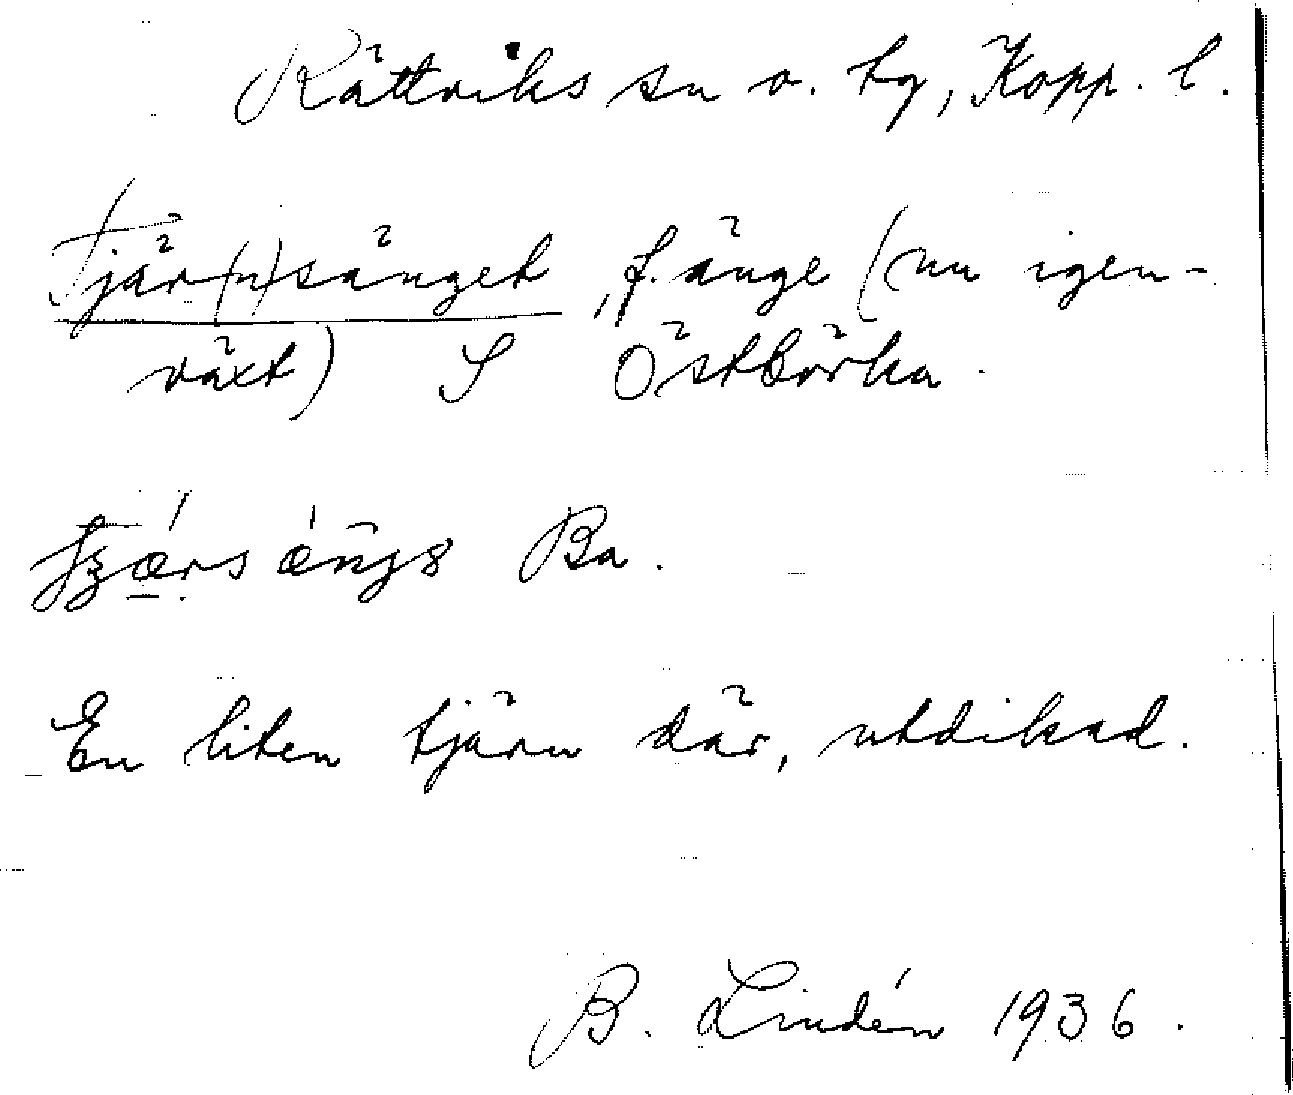 Rättviks sn o. tg, Kopp. l.
Tjär(n)sänget, f. änge (nu igen-
växt) S Östbörka.
Ba.
En liten tjärn där, utdikad.
B. Lindén 1936.